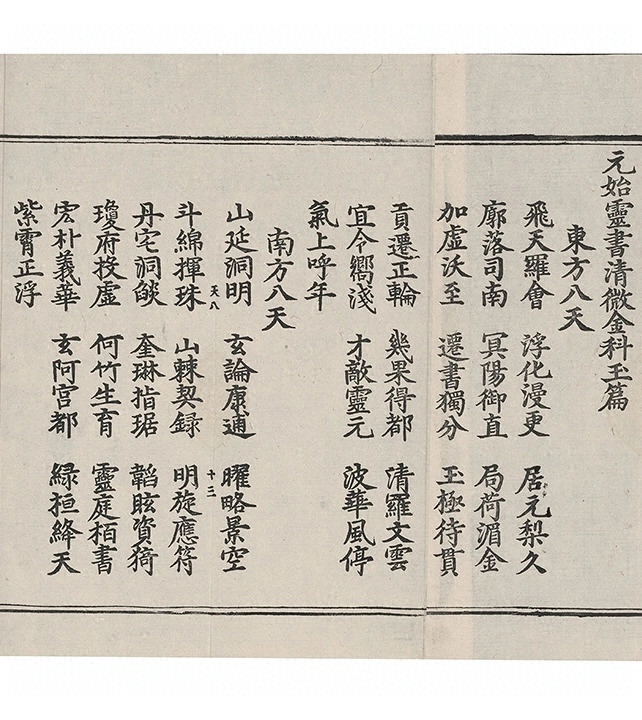 元始靈書清微金科玉篇
東方八天
飛天羅會 浮化漫更 居元梨久
廓落司南 冥陽御直 局荷湄金
加虛沃至 遷書獨分 玉極待貫
貢遷正輪 幾果得都 清羅文雲
宜令嚮淺 才敵靈元 波華風停
氣上呼年
南方八天
山延洞明 玄論康逋 曜略景空
天八 十三
斗綿揮珠 山棘契録 明旋應符
丹宅洞燄 奎琳指琚 韜眩資猗
瓊府投虛 何竹生育 靈庭栢書
宏朴義華 玄阿宮都 緑桓絳天
紫霄正浮